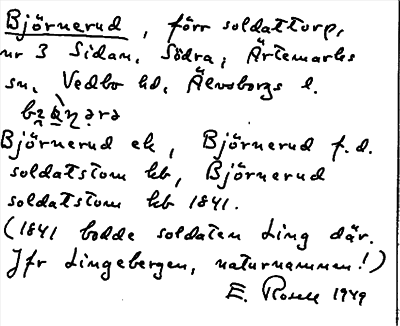 Björnerud, förr soldattorp,
nr 3 Sidan, Södra, Ärtemarks
sn, Vedbo hd, Älvsborgs l.
Björnerud ek, Björnerud f.d.
soldatstom kb, Björnerud
soldatstom kb 1841.
(1841 bodde soldaten Ling där.
Jfr Lingebergen, naturnamnen!)
E. Rosell 1949